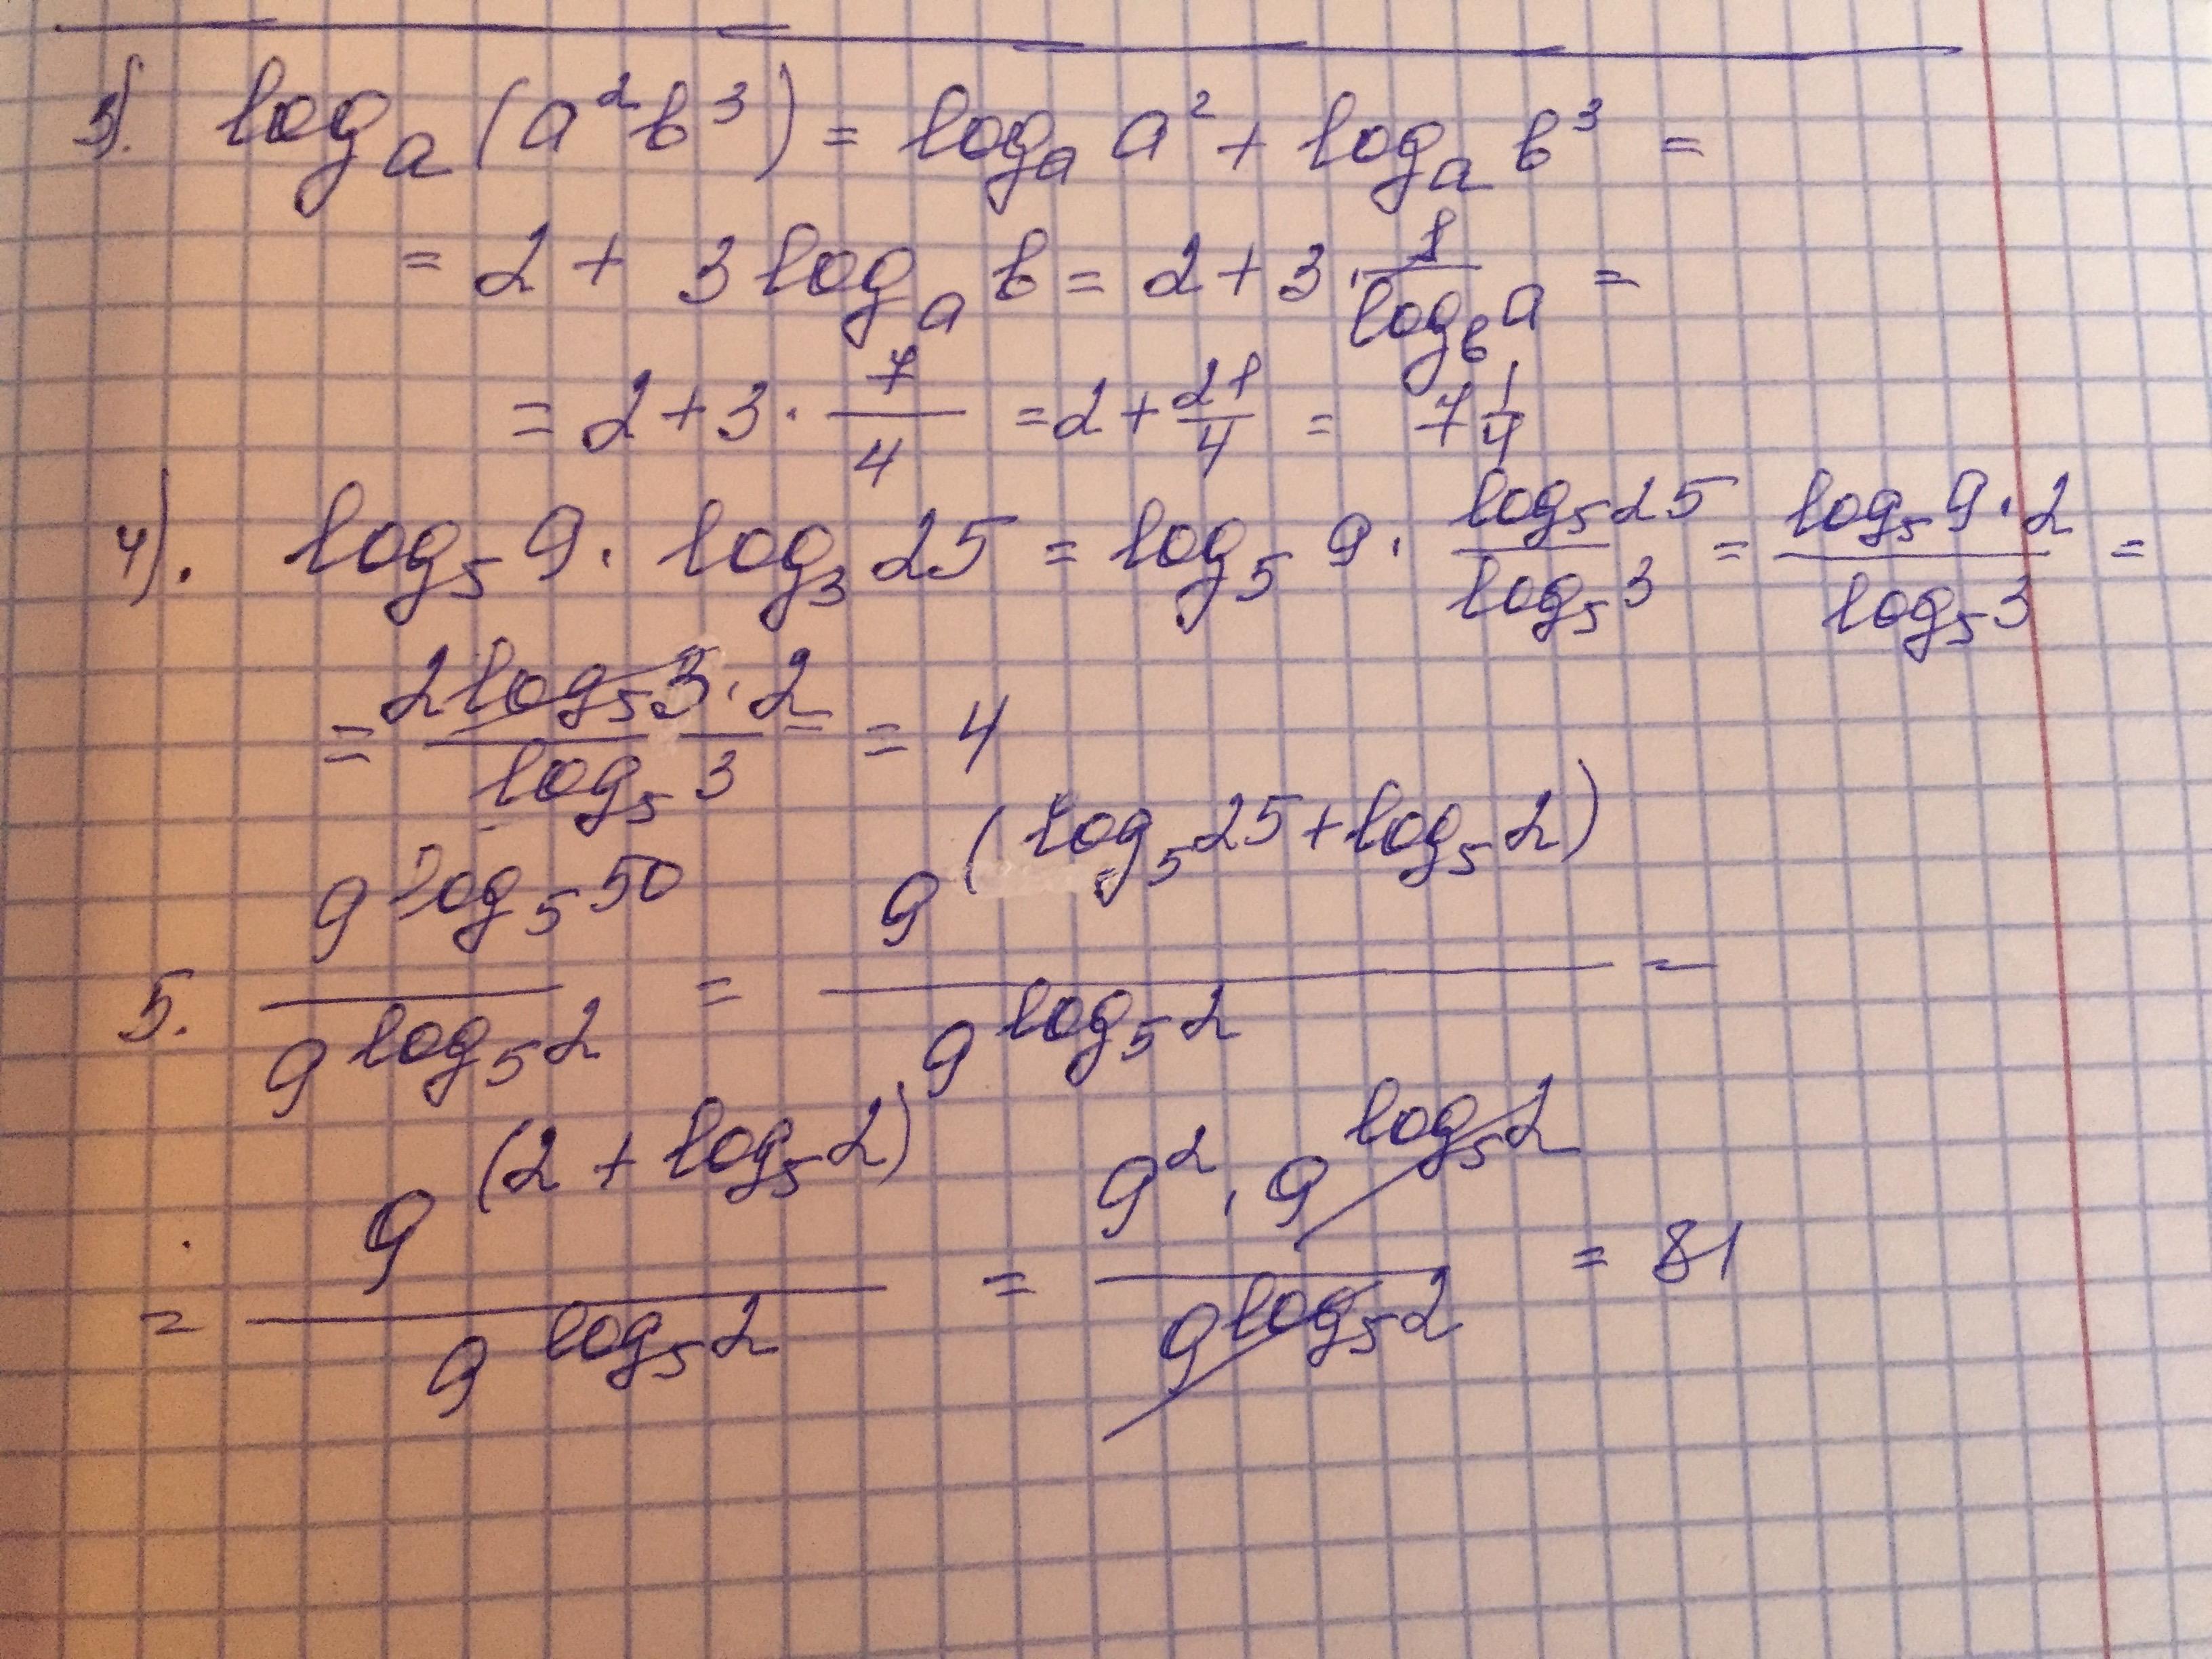 3). logₐ(a²b³) = logₐ a² + logₐ b³ =
= 2 + 3 logₐ b = 2 + 3 · 1/(log_b a) =
= 2 + 3 · 7/4 = 2 + 21/4 = 7 1/4
4). log₅ 9 · log₃ 25 = log₅ 9 · (log₅ 25)/(log₅ 3) = (log₅ 9 · 2)/(log₅ 3) =
= (2 log₅ 3 · 2)/(log₅ 3) = = 4
5. 9^(log₅ 50)/9^(log₅ 2) = 9^(log₅ 25 + log₅ 2)/9^(log₅ 2) =
= 9^(2 + log₅ 2)/9^(log₅ 2) = (9² · 9^(log₅ 2))/9^(log₅ 2) = 81